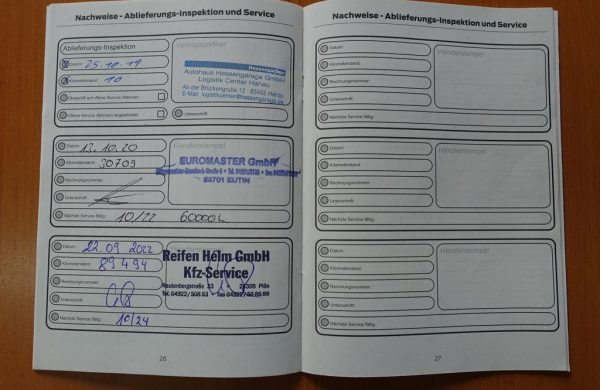 Nachweise - Ablieferungs-Inspektion und Service
Ablieferungs-Inspektion
Datum: 25.10.19
Kilometerstand: 10
Überprüft auf offene Service-Aktionen:
Offene Service Aktionen abgearbeitet:
Vertragspartner
Hessengarage
Autohaus Hessengarage GmbH
Logistik Center Hanau
An der Brückengrube 12 - 63452 Hanau
E-Mail: logistikcenter@hessengarage.de
Unterschrift:
Datum: 13.10.20
Kilometerstand: 30709
Rechnungsnummer:
Unterschrift:
Nächste Service fällig: 10/22 60000
Händlerstempel
EUROMASTER GmbH
23701 EUTIN
Datum: 22.09 2022
Kilometerstand: 89494
Rechnungsnummer:
Unterschrift:
Nächste Service fällig: 10/24
Händlerstempel
Reifen Helm GmbH
Kfz-Service
Rautenbergstraße 23 24306 Plön
26
Nachweise - Ablieferungs-Inspektion und Service
Datum:
Kilometerstand:
Rechnungsnummer:
Unterschrift:
Nächste Service fällig:
Händlerstempel
Datum:
Kilometerstand:
Rechnungsnummer:
Unterschrift:
Nächste Service fällig:
Händlerstempel
Datum:
Kilometerstand:
Rechnungsnummer:
Unterschrift:
Nächste Service fällig:
Händlerstempel
27